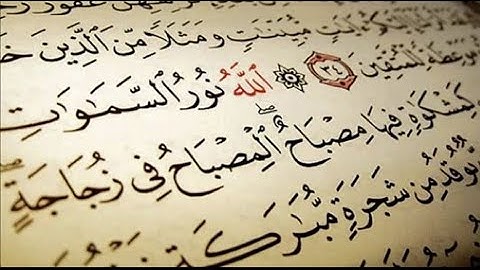 غَفُورٌ
مُّبَيِّنَٰتٍ وَمَثَلًا مِّنَ ٱلَّذِينَ خَ
مَوْعِظَةً لِّلْمُتَّقِينَ ٣٤ ٱللَّهُ نُورُ ٱلسَّمَٰوَٰتِ
كَمِشْكَوٰةٍ فِيهَا مِصْبَاحٌ ٱلْمِصْبَاحُ فِى زُجَاجَةٍ
يُوقَدُ مِن شَجَرَةٍ مُّبَٰرَكَةٍ